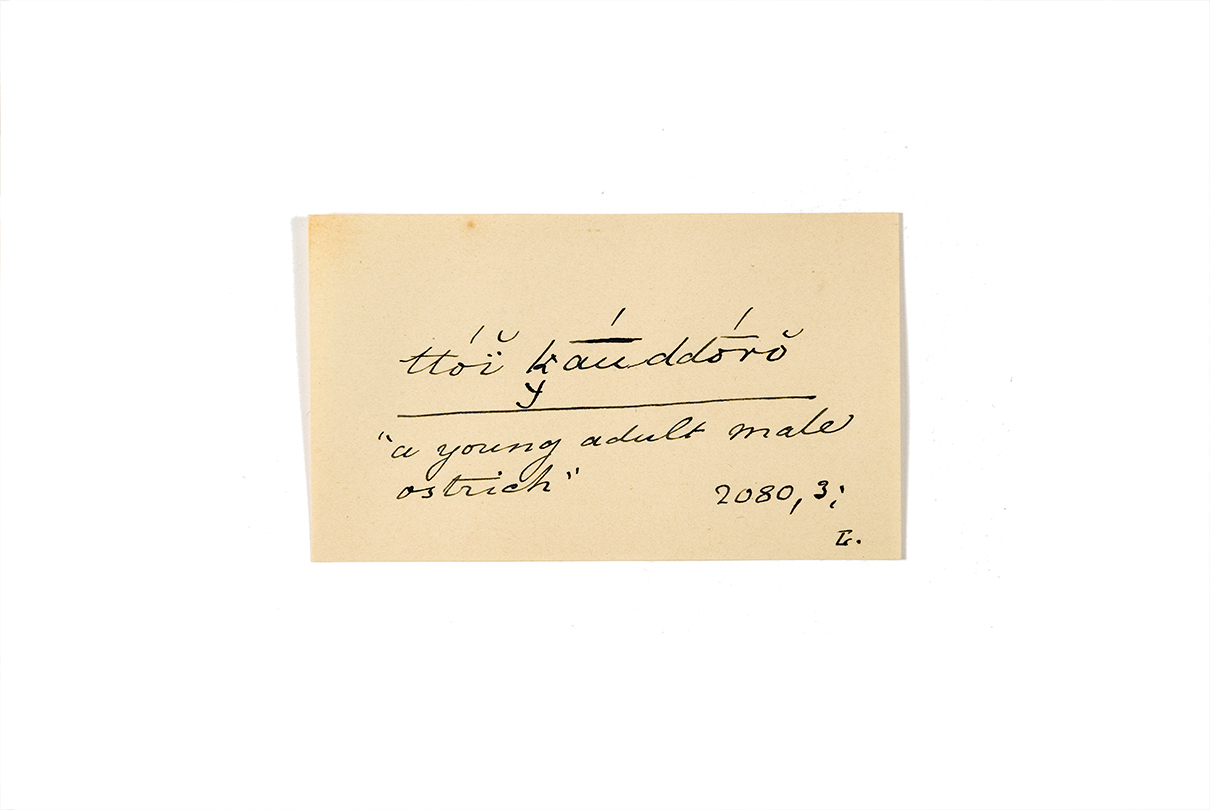 ttóï̆ k̯āúddṓrŏ
"a young adult male
ostrich"
2080, 3;
L.